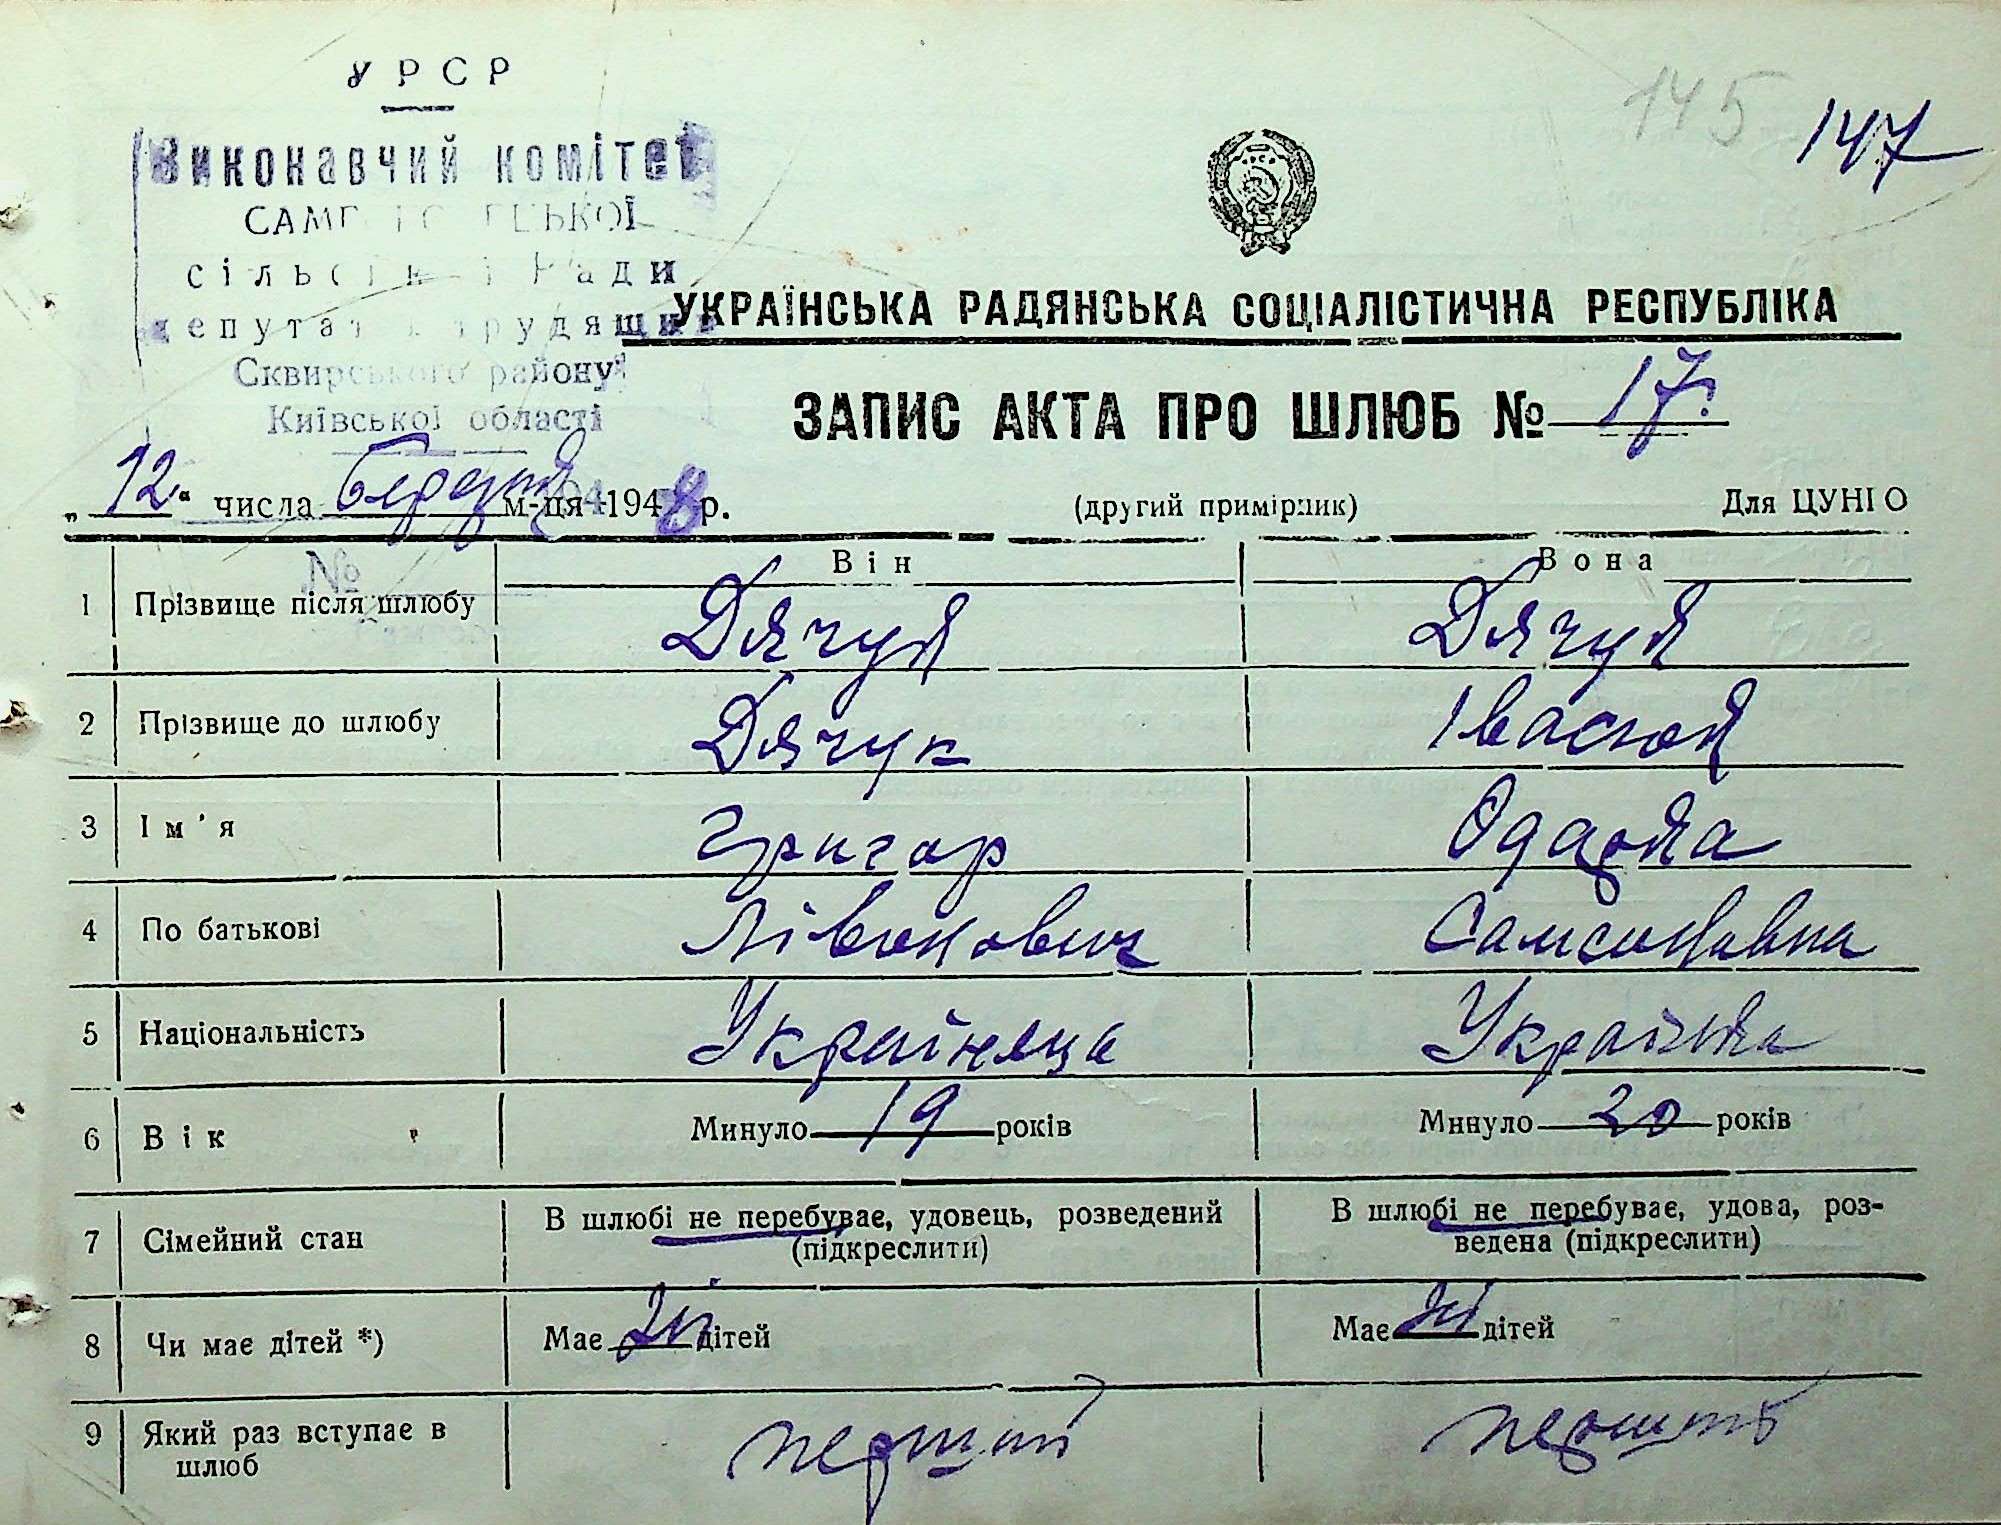 УРСР
145
147
Виконавчий комітет
сільської Ради
депутатів трудящих
УКРАЇНСЬКА РАДЯНСЬКА СОЦІАЛІСТИЧНА РЕСПУБЛІКА
Сквирського району
Київської області
ЗАПИС АКТА ПРО ШЛЮБ № 17
„12“ числа березня м-ця 1948 р. (другий примірник) Для ЦУНГО
№
Він Вона
1 Прізвище після шлюбу Дячук Дячук
2 Прізвище до шлюбу Дячук Івасюк
3 Ім'я Григор Одарка
4 По батькові Лівонович Самсонавна
5 Національність Українець Українка
6 Вік Минуло 19 років Минуло 20 років
7 Сімейний стан В шлюбі не перебуває, удовець, розведений (підкреслити) В шлюбі не перебуває, удова, роз-
ведена (підкреслити)
8 Чи має дітей *) Має ні дітей Має ні дітей
9 Який раз вступає в шлюб перший перший